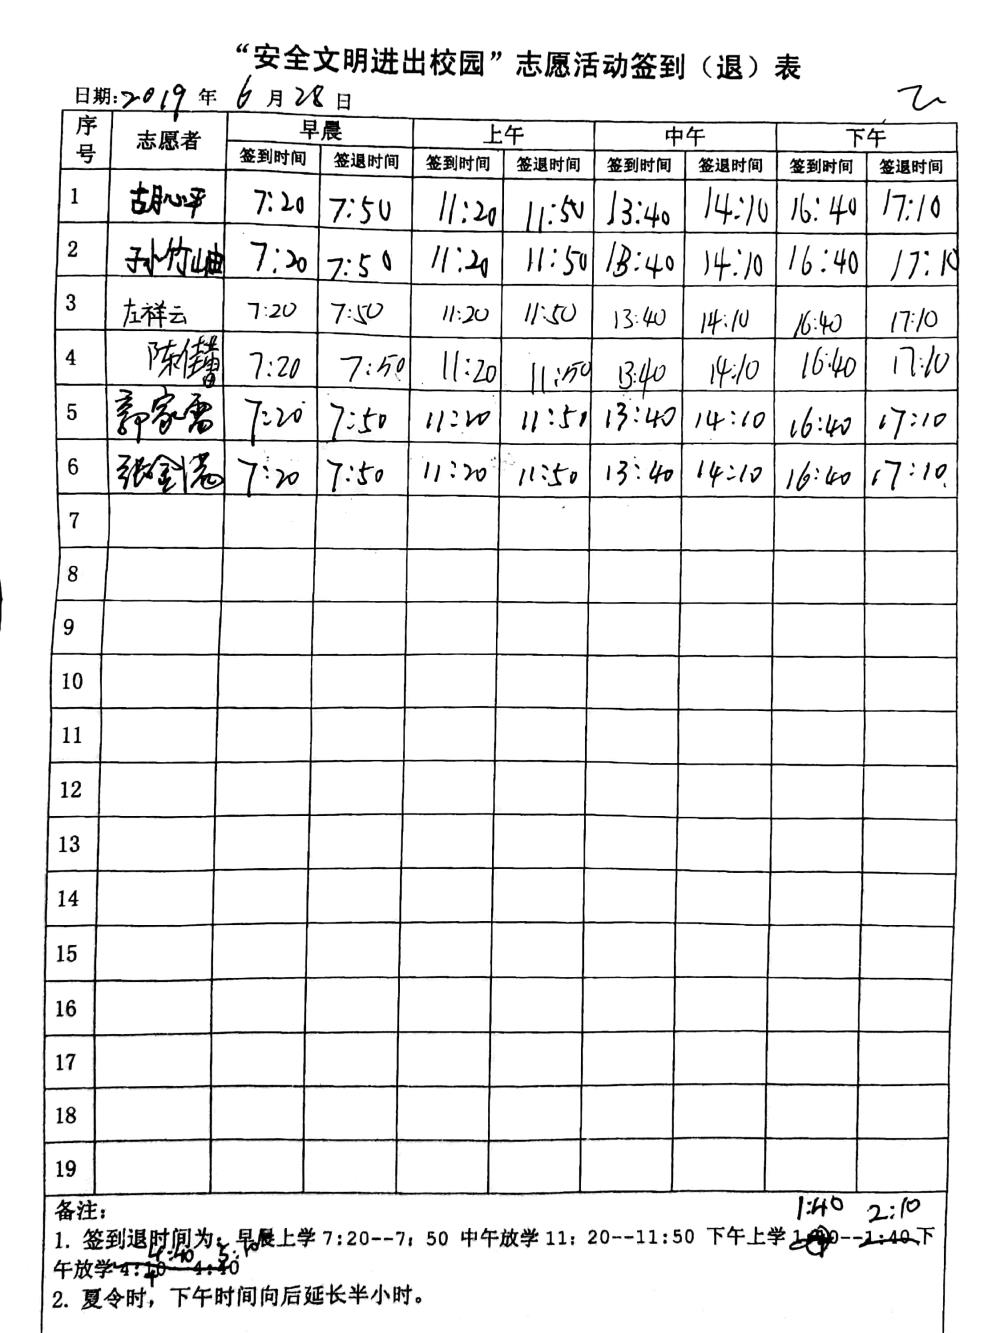 “安全文明进出校园”志愿活动签到（退）表
日期:2019年 6月28日
序号 志愿者 早晨 上午 中午 下午
签到时间 签退时间 签到时间 签退时间 签到时间 签退时间 签到时间 签退时间
1 胡心平 7:20 7:50 11:20 11:50 13:40 14:10 16:40 17:10
2 孙竹山 7:20 7:50 11:20 11:50 13:40 14:10 16:40 17:10
3 左祥云 7:20 7:50 11:20 11:50 13:40 14:10 16:40 17:10
4 陈佳 7:20 7:50 11:20 11:50 13:40 14:10 16:40 17:10
5 郭家雷 7:20 7:50 11:20 11:50 13:40 14:10 16:40 17:10
6 张金 7:20 7:50 11:20 11:50 13:40 14:10 16:40 17:10
7
8
9
10
11
12
13
14
15
16
17
18
19
备注：
1:40 2:10
1. 签到退时间为：早晨上学 7:20--7：50 中午放学 11：20--11:50 下午上学 --1:40 下
4:40 5:10
午放学 4:10--4:40
2. 夏令时，下午时间向后延长半小时。